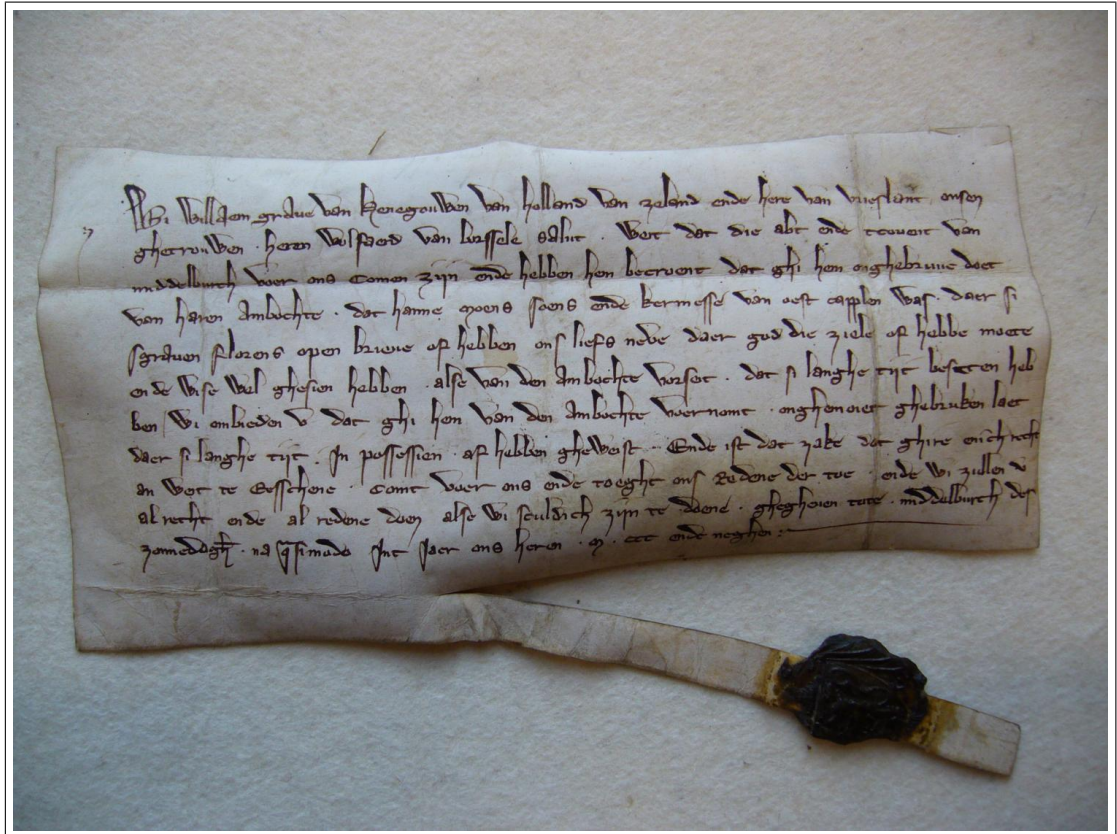 Wi Willaem grave van Henegouwen van Holland van zeland ende here van vriesland onsen
ghetrouwen heren Wolfaerd van borssele salut . Weit dat die abt ende covent van
middelburch voer ons comen zijn ende hebben hem becroent dat ghi hem onghebruuc doet
van haren Ambochte . dat hanne moens soens ende kermesse van oest capplen was . daer si
sgraven florens open brieve of hebben ons liefs neve daer god die ziele of hebbe moete
ende Wise Wel ghesien hebben . alse van den Ambochte vorseit . dat si langhe tijt beseten heb
ben . Wi ombieden v dat ghi hem van den Ambochte voernomt . onghemoiet ghebruken laet
daer si langhe tijt . In possessien . af hebben gheweist . Ende ist dat zake dat ghire enich recht
an Weit te Eesschene . Comt voer ons ende toeght ons Redene der toe . ende Wi zullen v
al recht ende al redene doen alse Wi sculdich zijn te doene . ghegheven tote . middelburch des
zonnedaghes . na quasimodo Int Jaer ons heren . m . ccc ende neghen :